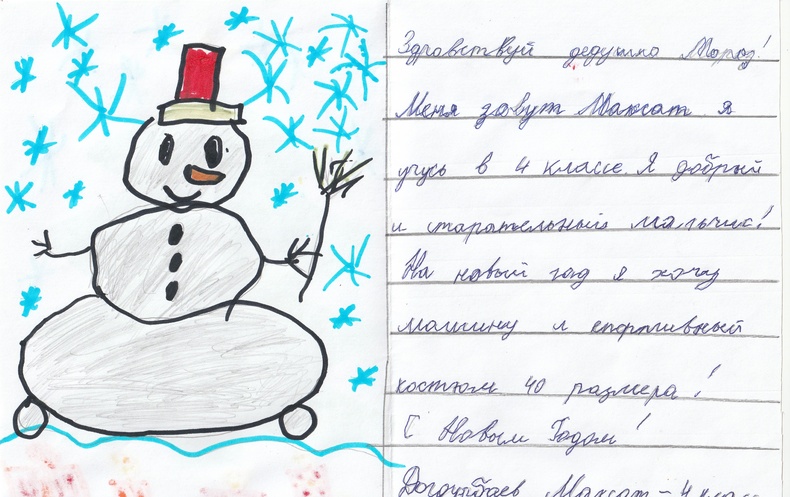 Здравствуй дедушка Мороз!
Меня зовут Максат я
учусь в 4 классе. Я добрый
и старательный мальчик!
На новый год я хочу
машину и спортивный
костюм 40 размера!
С Новым Годом!
Максат – 4 класс